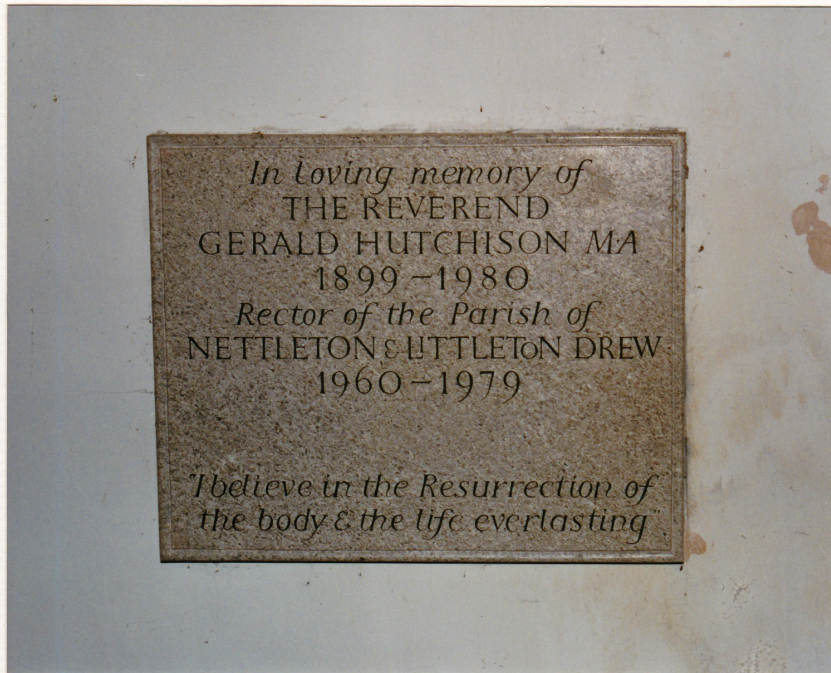 In loving memory of
THE REVEREND
GERALD HUTCHISON MA
1899-1980
Rector of the Parish of
NETTLETON & LITTLETON DREW
1960-1979
"I believe in the Resurrection of
the body & the life everlasting"